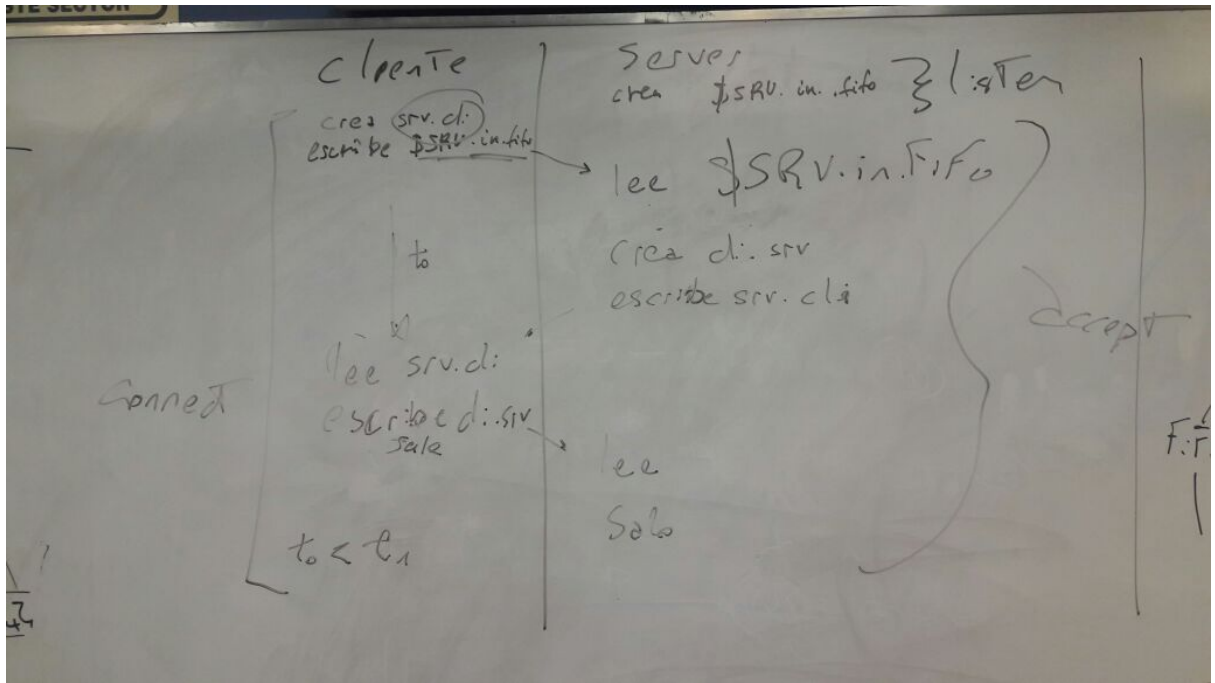 STE SECTOR
Cliente
crea srv.cli
escribe $SRV.in.fifo
to
lee srv.cli
escribe cli.srv
sale
to < t1
Connect
Server
crea $SRV.in.fifo } listen
lee $SRV.in.FiFo
crea cli.srv
escribe srv.cli
lee
Salo
accept